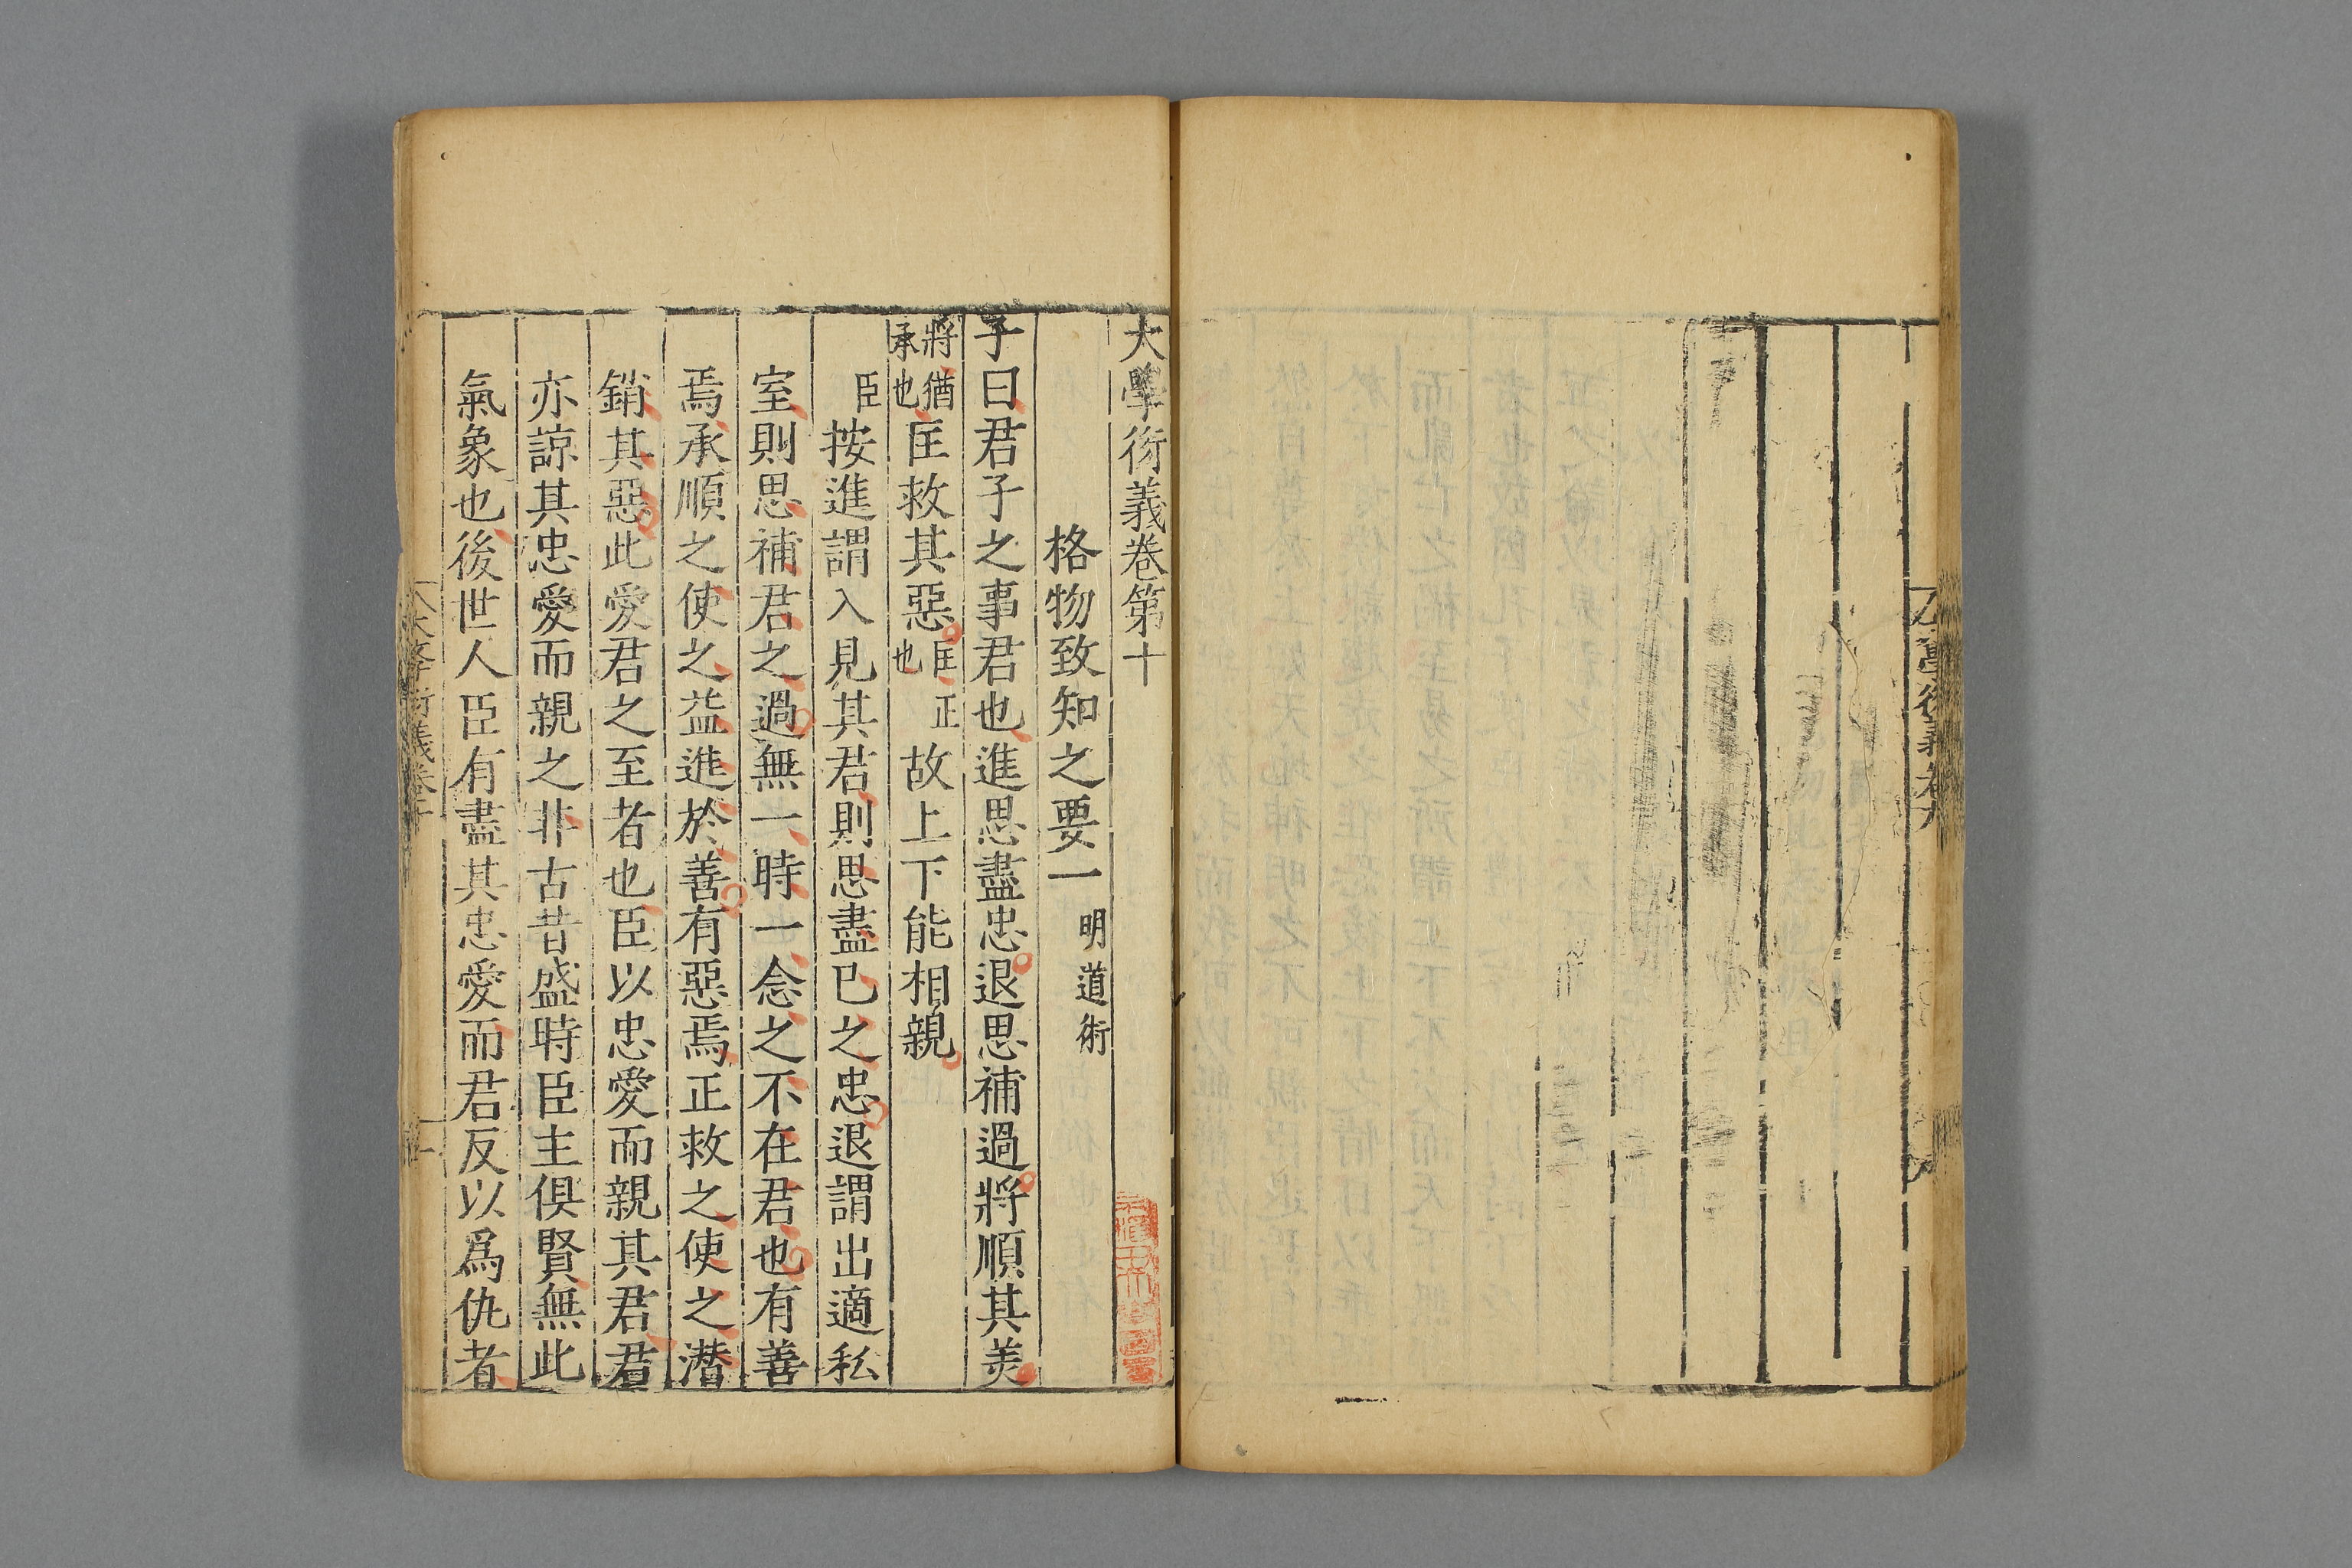 大學衍義卷第十
格物致知之要一 明道術
子曰君子之事君也進思盡忠退思補過將順其美
將猶承也匡救其惡匡正也故上下能相親
臣按進謂入見其君則思盡已之忠退謂出適私
室則思補君之過無一時一念之不在君也有善
焉承順之使之益進於善有惡焉正救之使之潛
銷其惡此愛君之至者也臣以忠愛而親其君君
亦諒其忠愛而親之非古昔盛時臣主俱賢無此
氣象也後世人臣有盡其忠愛而君反以爲仇者